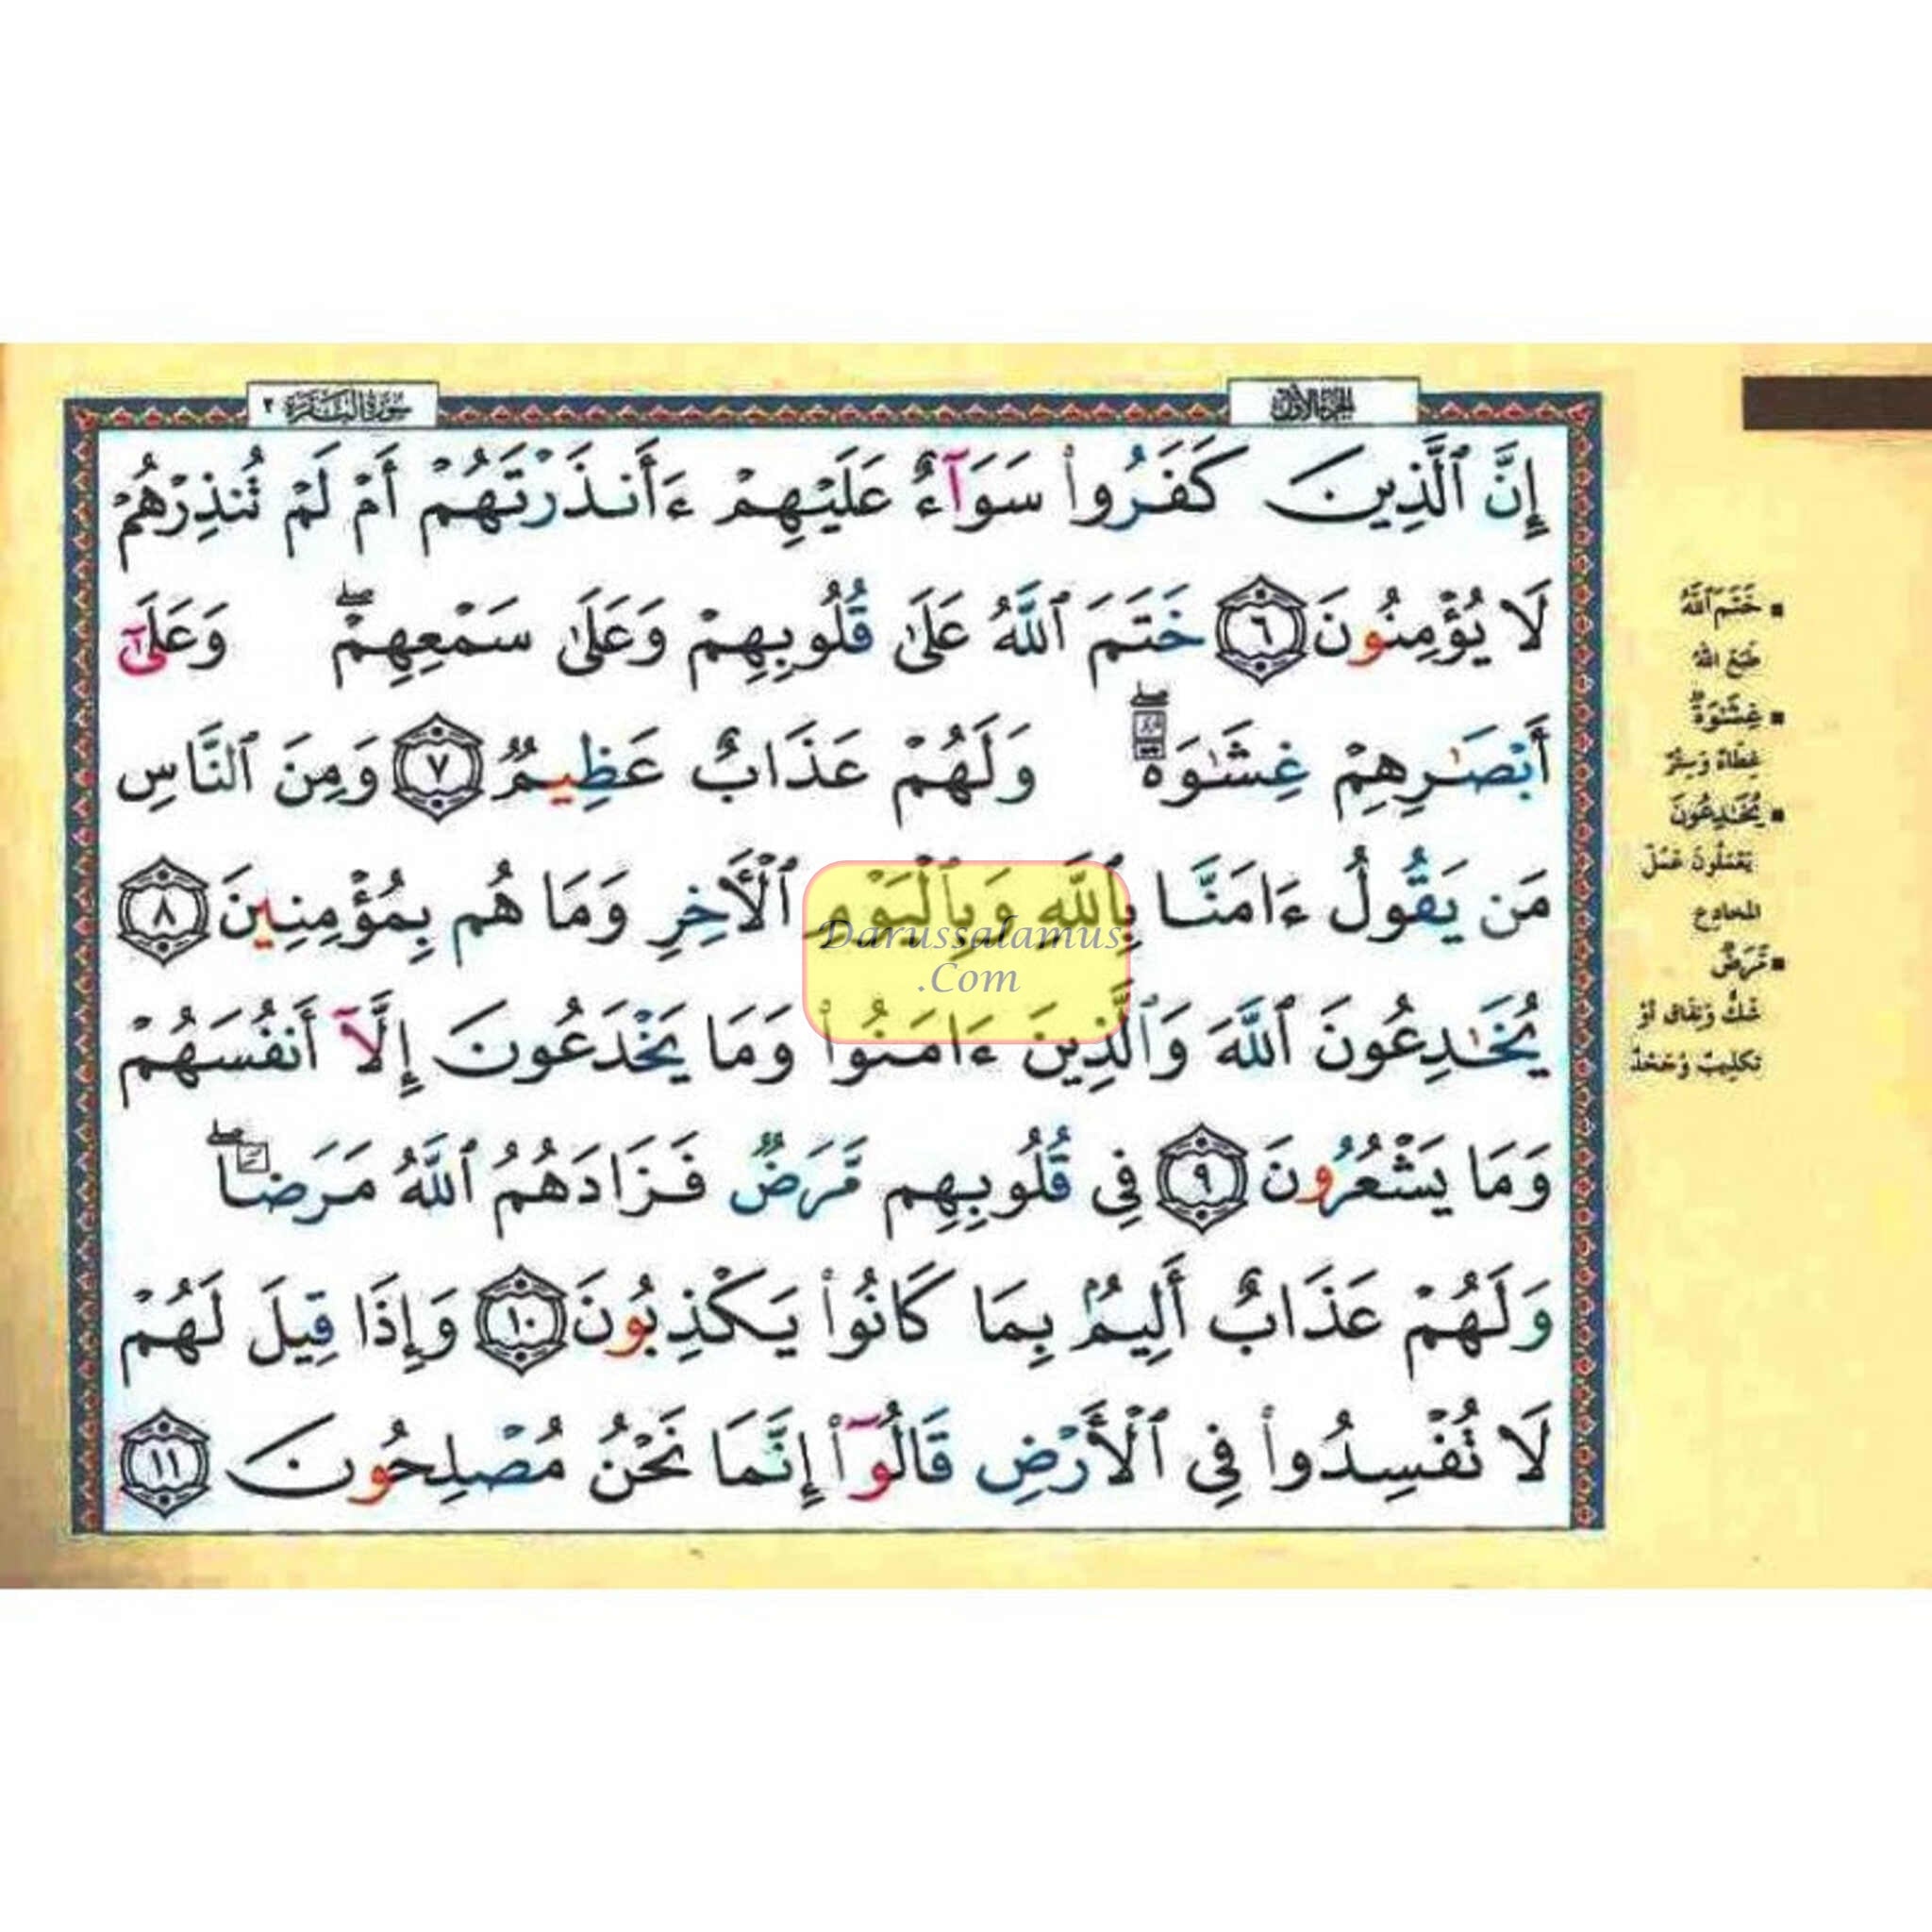 الجزء الأول
سورة البقرة ٢
إِنَّ ٱلَّذِينَ كَفَرُوا۟ سَوَآءٌ عَلَيْهِمْ ءَأَنذَرْتَهُمْ أَمْ لَمْ تُنذِرْهُمْ
لَا يُؤْمِنُونَ ٦ خَتَمَ ٱللَّهُ عَلَىٰ قُلُوبِهِمْ وَعَلَىٰ سَمْعِهِمْ ۖ وَعَلَىٰٓ
أَبْصَـٰرِهِمْ غِشَـٰوَةٌ ۖ وَلَهُمْ عَذَابٌ عَظِيمٌ ٧ وَمِنَ ٱلنَّاسِ
مَن يَقُولُ ءَامَنَّا بِٱللَّهِ وَبِٱلْيَوْمِ ٱلْأَخِرِ وَمَا هُم بِمُؤْمِنِينَ ٨
يُخَـٰدِعُونَ ٱللَّهَ وَٱلَّذِينَ ءَامَنُوا۟ وَمَا يَخْدَعُونَ إِلَّآ أَنفُسَهُمْ
وَمَا يَشْعُرُونَ ٩ فِى قُلُوبِهِم مَّرَضٌ فَزَادَهُمُ ٱللَّهُ مَرَضًا ۖ
وَلَهُمْ عَذَابٌ أَلِيمٌۢ بِمَا كَانُوا۟ يَكْذِبُونَ ١٠ وَإِذَا قِيلَ لَهُمْ
لَا تُفْسِدُوا۟ فِى ٱلْأَرْضِ قَالُوٓا۟ إِنَّمَا نَحْنُ مُصْلِحُونَ ١١
Darussalamus
.Com
▪ خَتَمَ ٱللَّهُ
طَبَعَ اللهُ
▪ غِشَـٰوَةٌ
غِطَاءٌ وَسِتْرٌ
▪ يُخَـٰدِعُونَ
يَعْمَلُونَ عَمَلَ
المخادِعِ
▪ مَّرَضٌ
شَكٌّ وَنِفَاقٌ أَوْ
تَكْذِيبٌ وَجَحْدٌ